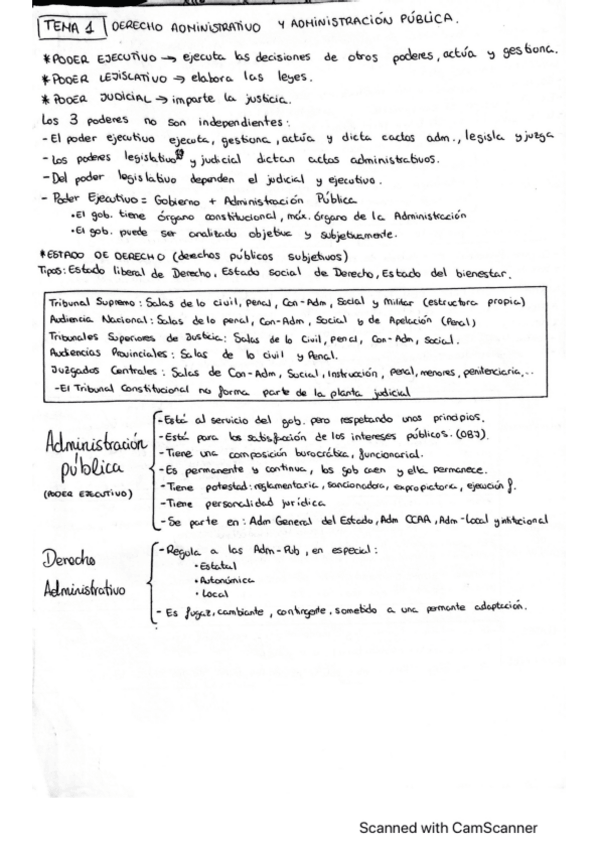 TEMA 1 DERECHO ADMINISTRATIVO Y ADMINISTRACIÓN PÚBLICA.
* PODER EJECUTIVO → ejecuta las decisiones de otros poderes, actúa y gestiona.
* PODER LEJISLATIVO → elabora las leyes.
* PODER JUDICIAL → imparte la justicia.
Los 3 poderes no son independientes:
- El poder ejecutivo ejecuta, gestiona, actúa y dicta cactos adm., legisla y juzga
- Los poderes legislativo y judicial dictan actos administrativos.
- Del poder legislativo dependen el judicial y ejecutivo.
- Poder Ejecutivo = Gobierno + Administración Pública
• El gob. tiene órgano constitucional, máx. órgano de la Administración
• El gob. puede ser analizado objetiva y subjetivamente.
* ESTADO DE DERECHO (derechos públicos subjetivos)
Tipos: Estado liberal de Derecho, Estado social de Derecho, Estado del bienestar.
Tribunal Supremo: Salas de lo civil, penal, Con-Adm, Social y Militar (estructura propia)
Audiencia Nacional: Salas de lo penal, Con-Adm, Social y de Apelación (Penal)
Tribunales Superiores de Justicia: Salas de lo Civil, penal, Con-Adm, Social.
Audiencias Provinciales: Salas de lo civil y Penal.
Juzgados Centrales: Salas de Con-Adm, Social, Instrucción, Penal, menores, penitenciaria,..
- El Tribunal Constitucional no forma parte de la planta judicial
Administración pública (PODER EJECUTIVO)
- Está al servicio del gob. pero respetando unos principios.
- Está para la satisfación de los intereses públicos. (OBJ).
- Tiene una composición burocrática, funcionarial.
- Es permanente y continua, los gob caen y ella permanece.
- Tiene potestad: reglamentaria, sancionadora, expropiatoria, ejecución f.
- Tiene personalidad jurídica
- Se parte en: Adm General del Estado, Adm CCAA, Adm-Local y institucional
Derecho Administrativo
- Regula a las Adm-Pub, en especial:
• Estatal
• Autonómica
• Local
- Es fugaz, cambiante, contingente, sometido a una permante adaptación.
Scanned with CamScanner